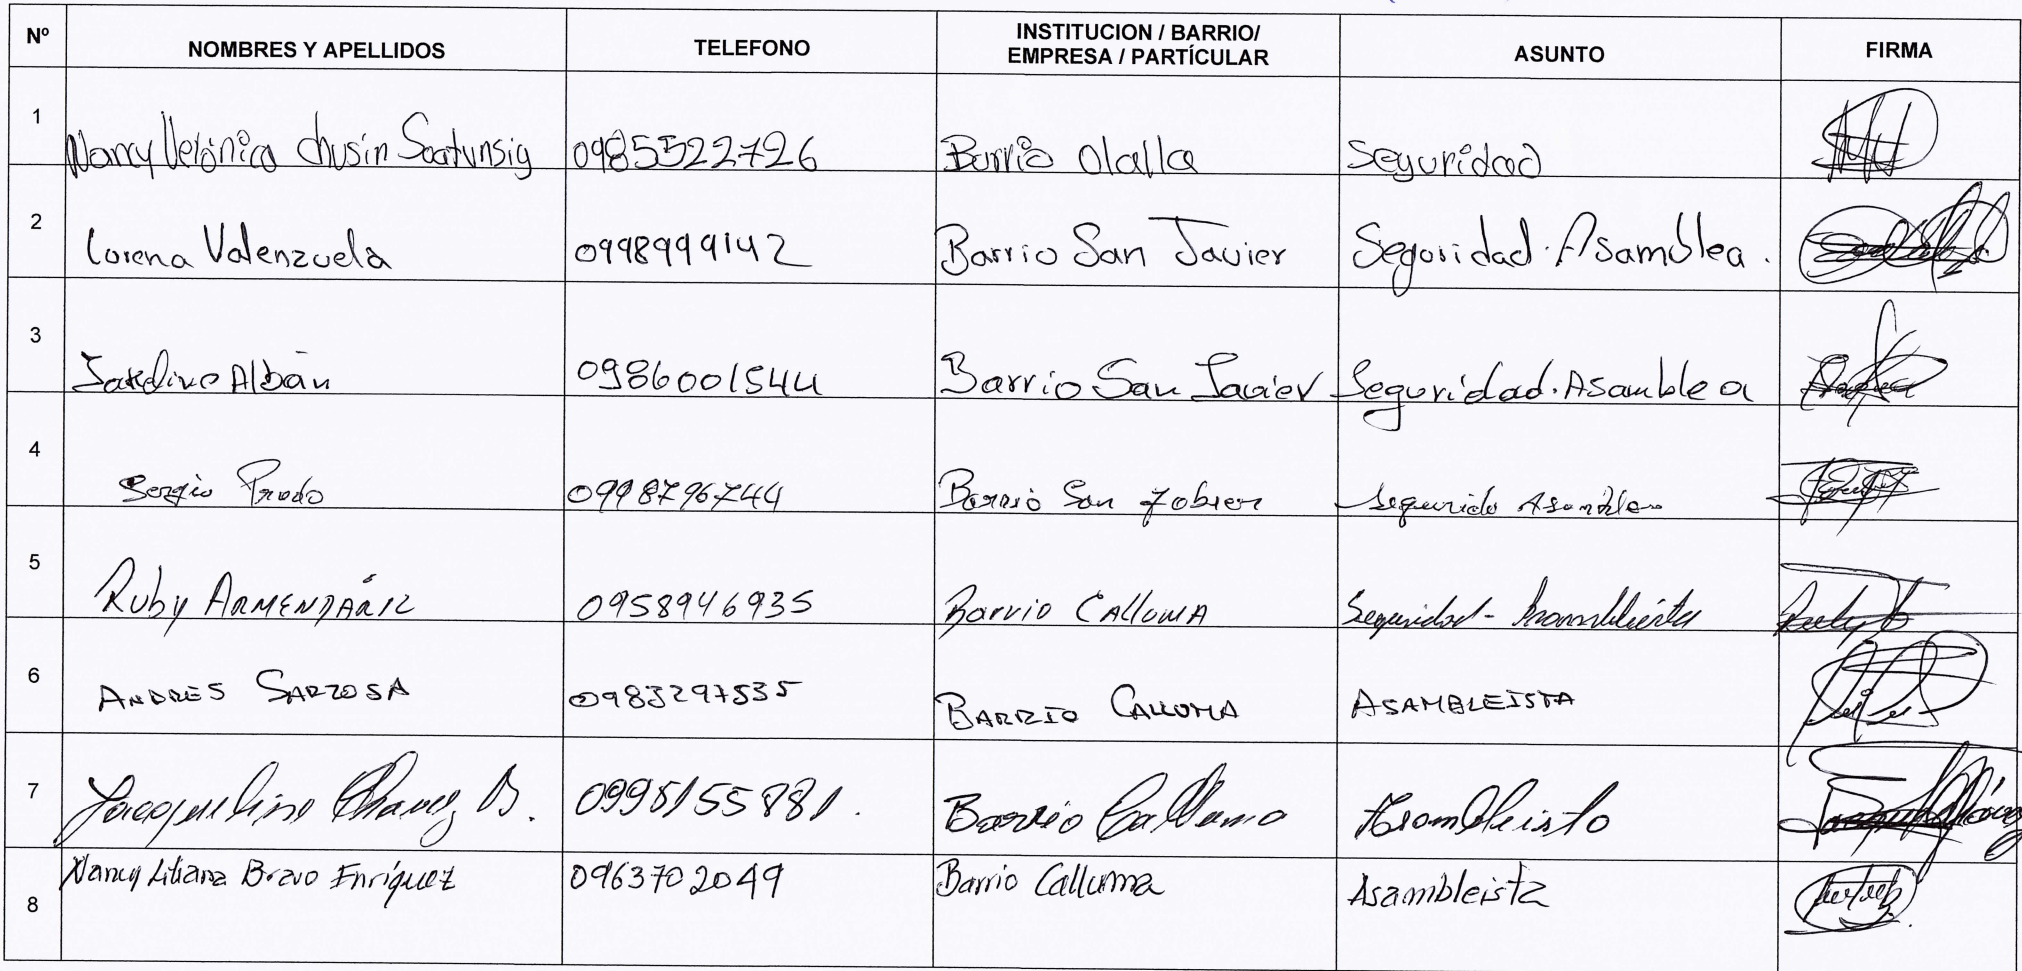 Nº NOMBRES Y APELLIDOS TELEFONO INSTITUCION / BARRIO/ EMPRESA / PARTÍCULAR ASUNTO FIRMA
1 Nancy Verónica Chusin Soatunsig 0985522726 Barrio Olalla Seguridad
2 Lorena Valenzuela 0998999142 Barrio San Javier Seguridad. Asamblea.
3 Albán 0986001544 Barrio San Javier Seguridad. Asamblea
4 Sergio Prado 0998796744 Barrio San Segurida Asamblea
5 Ruby ARMENDÁRIZ 0958946935 Barrio CALLUMA Seguridad - Asambleista
6 ANDRES SARZOSA 0983297535 BARRIO CALLUMA ASAMBLEISTA
7 Jacqueline Chavez B. 0995155881. Barrio Calluma Asambleista
8 Nancy Liliana Bravo Enríquez 0963702049 Barrio Calluma Asambleista